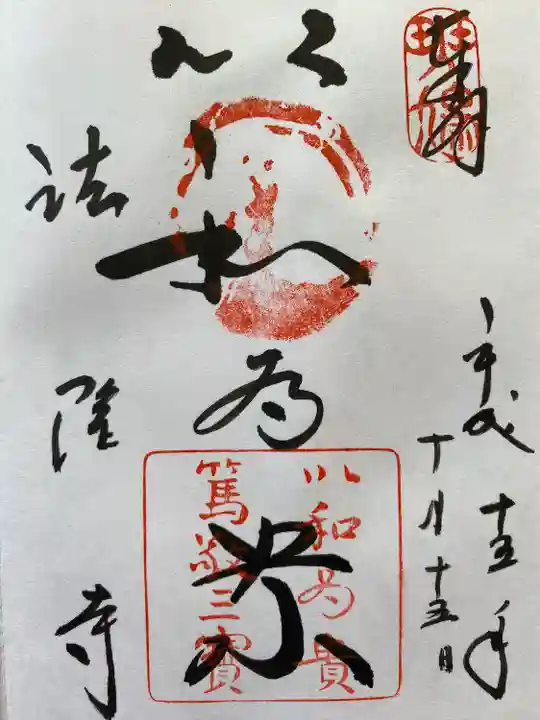 斑鳩
奉拝
平成十五年
十月十五日
以和為貴
以和為貴
篤敬三寶
法隆寺